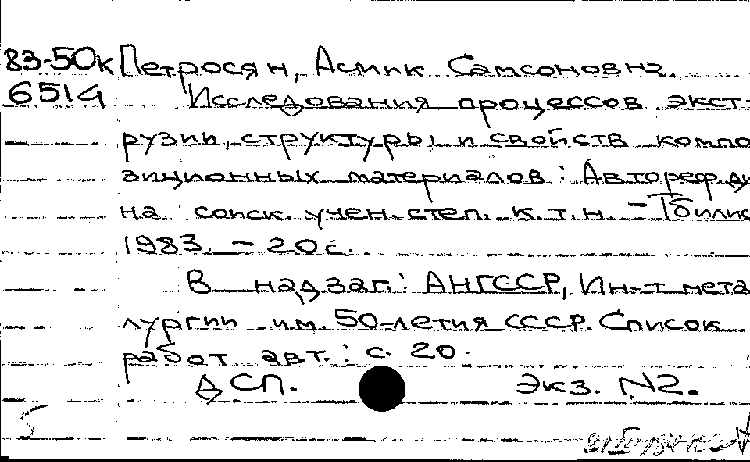 83-50к Петросян, Асмик Самсоновна.
6514 Исследования процессов экст-
рузии, структуры и свойств компо
зиционных материалов : Автореф. ди
на соиск. учен. степ. к. т. н. - Тбилис
1983. - 20 с.
В надзаг.: АН ГССР, Ин-т мета
лургии им. 50-летия СССР. Список
работ авт.: с. 20.
ДСП. Экз. N2.
5